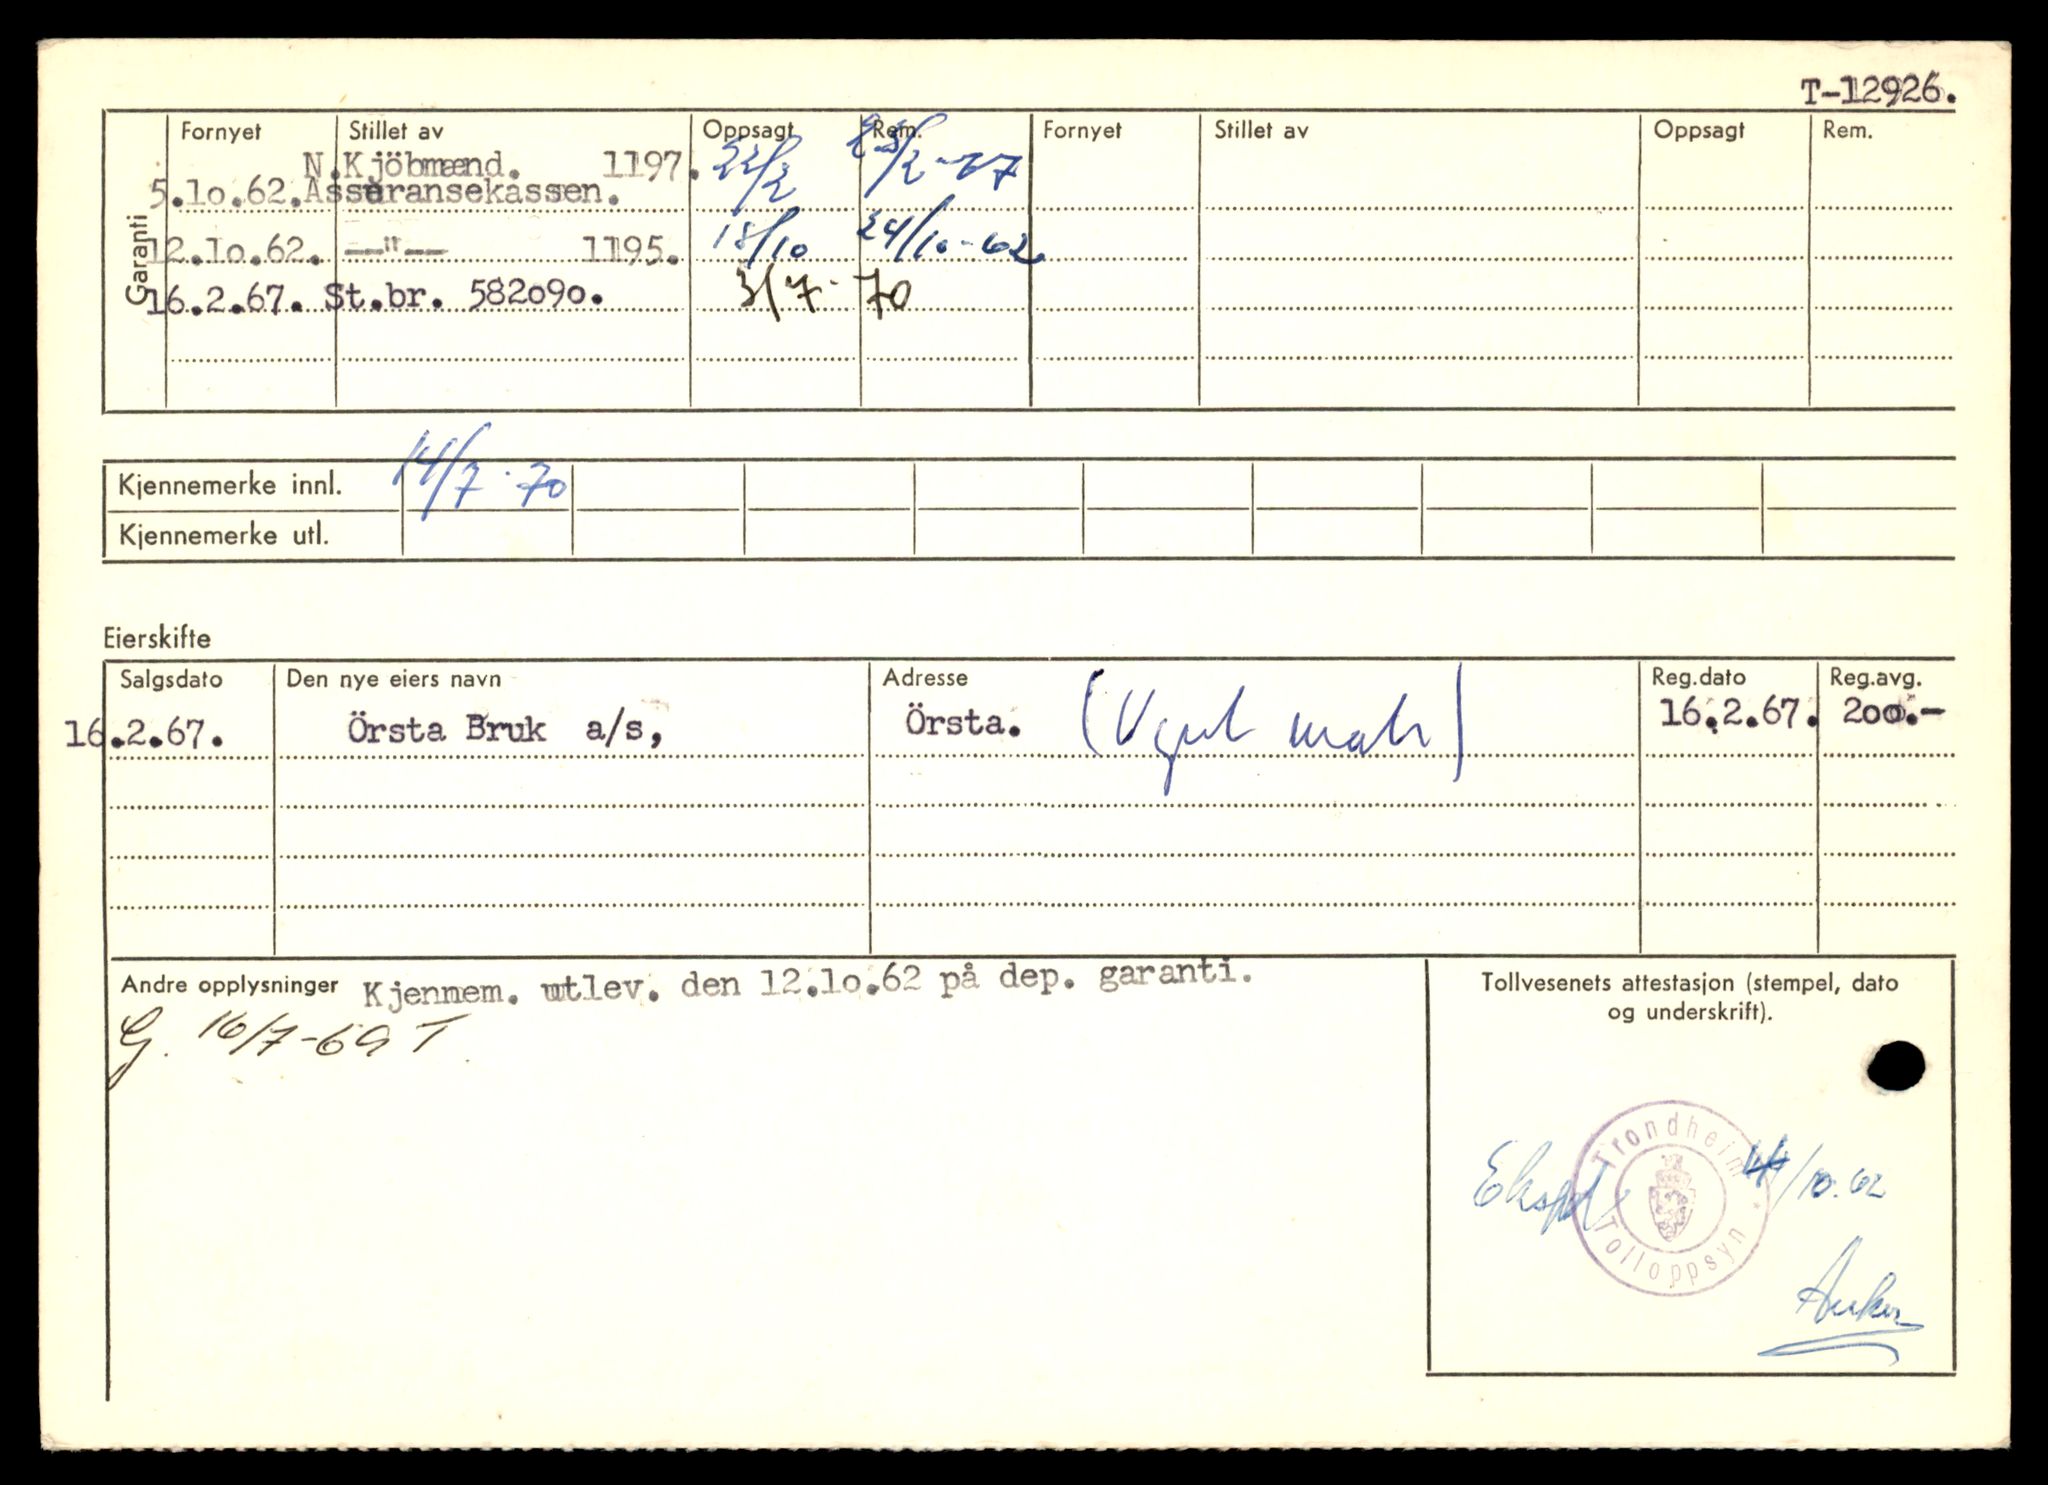 T-12926.
Garanti
Fornyet Stillet av Oppsagt Rem. Fornyet Stillet av Oppsagt Rem.
N.Kjöbmænd. 1197. 22/2
5.10.62. Assuransekassen.
12.10.62. --"-- 1195. 18/10 24/10-62
16.2.67. St.br. 582090. 3/7-70
Kjennemerke innl. 14/7-70
Kjennemerke utl.
Eierskifte
Salgsdato Den nye eiers navn Adresse Reg.dato Reg.avg.
16.2.67. Örsta Bruk a/s, Örsta. 16.2.67. 200.-
Andre opplysninger Kjennem. utlev. den 12.10.62 på dep. garanti.
G. 16/7-69 T
Tollvesenets attestasjon (stempel, dato
og underskrift).
Trondheim
Tolloppsyn
Eksp /10.62